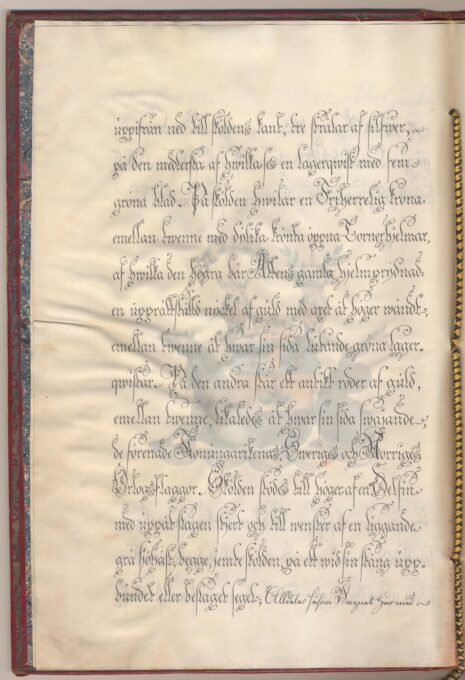 uppifrån ned till sköldens kant, tre strålar af silfwer,
på den medlersta af hwilka ses en lagerqwist med fem
gröna blad. På skölden hwilar en Friherrelig krona
emellan twenne med dylika krönta öppna Tornerhjelmar,
af hwilka den högra bär Ättens gamla hjelmprydnad:
en upprättstäld nyckel af guld med axet åt höger wändt
emellan twenne åt hwar sin sida lutande gröna lager-
qwistar. På den andra står ett antikt roder af guld,
emellan twenne, likaledes åt hwar sin sida swajande
de förenade Konungarikenas, Sweriges och Norriges
Örlogsflaggor. Skölden stödes till höger af en Delfin
med uppåt slagen stjert och till wenster af en liggande
grå sjöhäst, begge, jemte skölden, på ett wid sin stång upp-
bundet eller beslaget segel; Alldeles såsom Wapnet här med